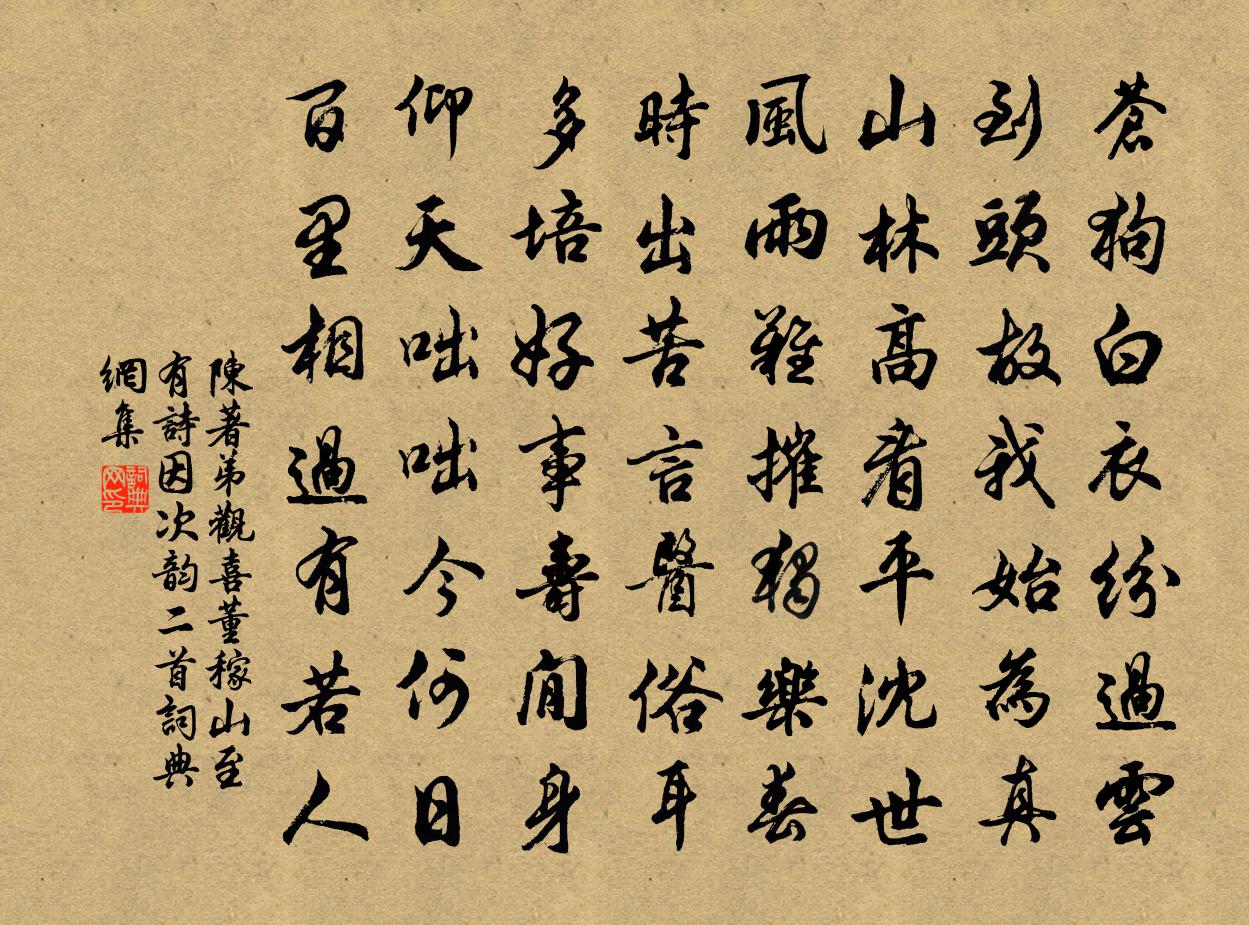 蒼狗白衣紛過雲
到頭故我始為真
山林高看平沈世
風雨難摧獨樂春
時出苦言醫俗耳
多培好事壽閒身
仰天咄咄今何日
百里相過有若人
陳著弟觀喜董稼山至
有詩因次韵二首詞典
網集
詞典网印